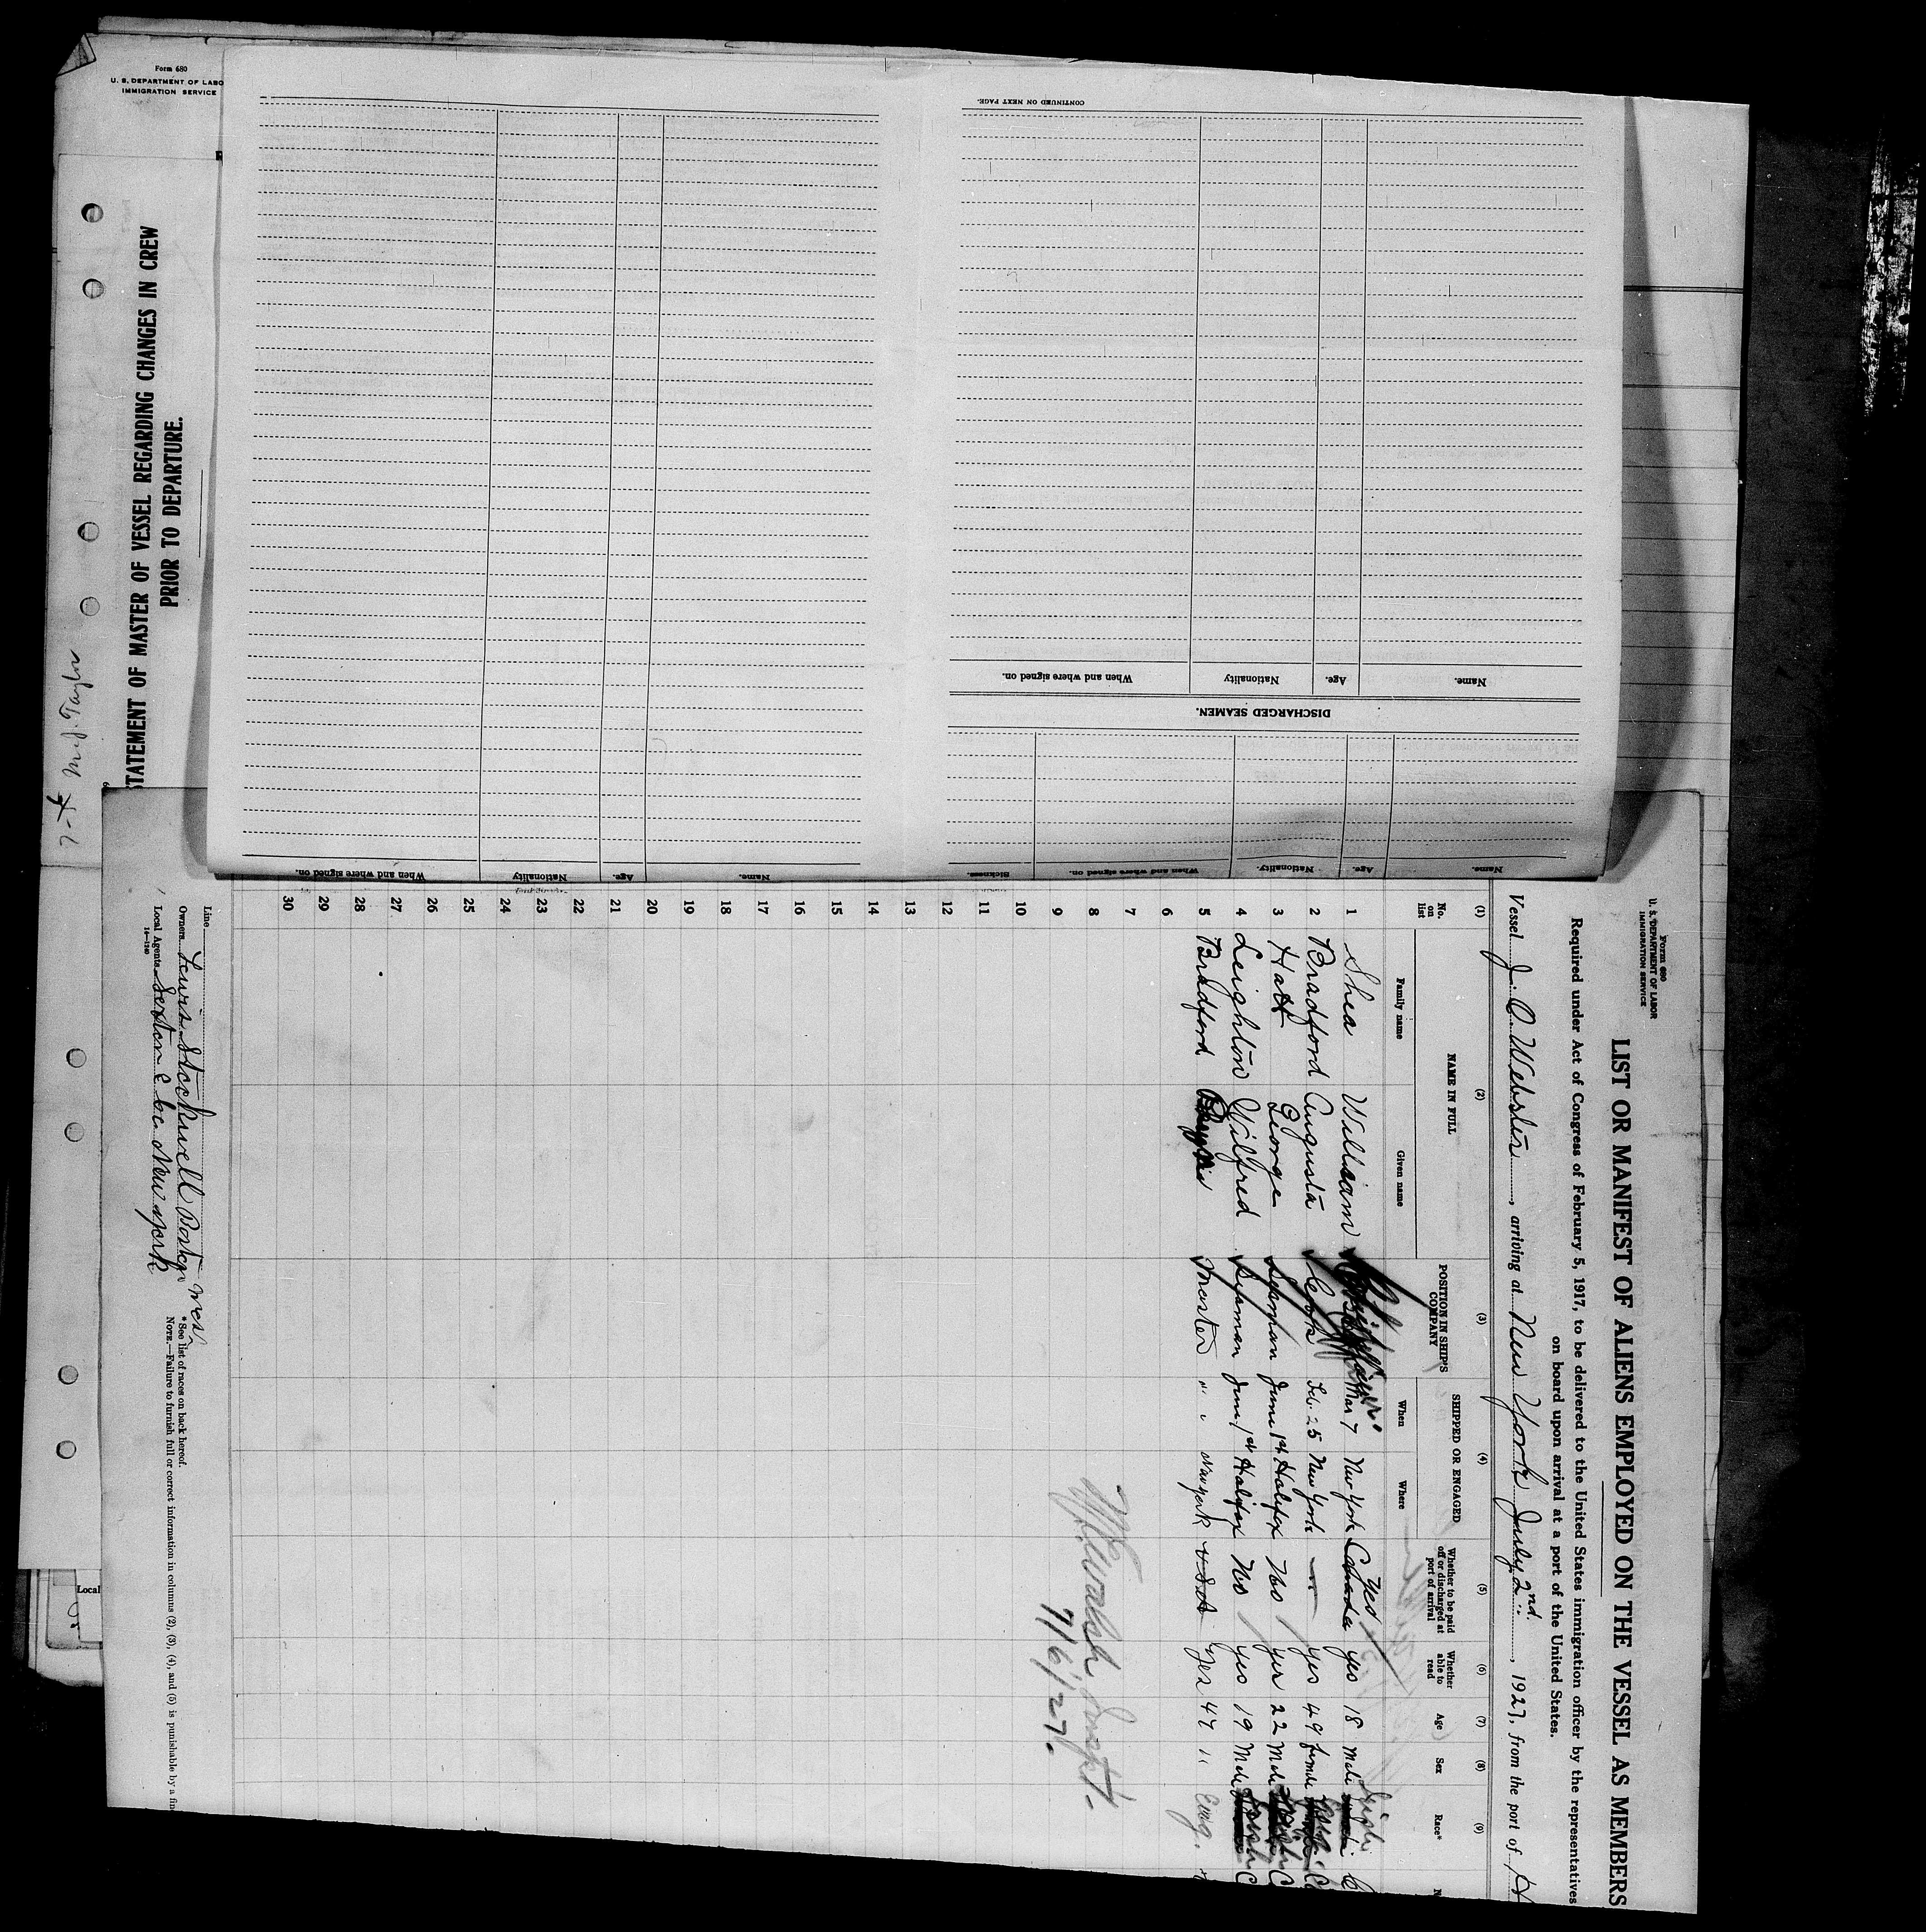 Form 680
U. S. DEPARTMENT OF LABO
IMMIGRATION SERVICE
STATEMENT OF MASTER OF VESSEL REGARDING CHANGES IN CREW
PRIOR TO DEPARTURE.
CONTINUED ON NEXT PAGE.
Name. Age. Nationality When and where signed on.
DISCHARGED SEAMEN.
Name. Age. Nationality. When and where signed on. Sickness.
Name. Age. Nationality When and where signed on.
Form 680
U. S. DEPARTMENT OF LABOR
IMMIGRATION SERVICE
LIST OR MANIFEST OF ALIENS EMPLOYED ON THE VESSEL AS MEMBERS
Required under Act of Congress of February 5, 1917, to be delivered to the United States immigration officer by the representatives
on board upon arrival at a port of the United States.
Vessel J. O. Webster, arriving at New York July 2nd, 1927, from the port of
(1) (2) (3) (4) (5) (6) (7) (8) (9)
No. on list NAME IN FULL POSITION IN SHIP'S COMPANY SHIPPED OR ENGAGED Whether to be paid off or discharged at port of arrival Whether able to read Age Sex Race*
Family name Given name When Where
1 Shea William Mar 7 New York Canada Yes yes 18 Male Irish
2 Bradford Augusta Cook Feb. 25 New York — yes 49 female
3 Hatt George Seaman June 1st Halifax No yes 22 Male
4 Leighton Wilfred Seaman June 1st Halifax No yes 19 Male
5 Bradford Master " " New York USA Yes 47 " Eng.
6
7
8
9
10
11
12
13
14
15
16
17
18
19
20
21
22
23
24
25
26
27
28
29
30
7/6/27.
Line
Owners Lewis Stockwell Boston Mass
Local Agents Sexton & Co. New York
14—1240
*See list of races on back hereof.
NOTE.—Failure to furnish full or correct information in columns (2), (3), (4), and (5) is punishable by a fin
Local